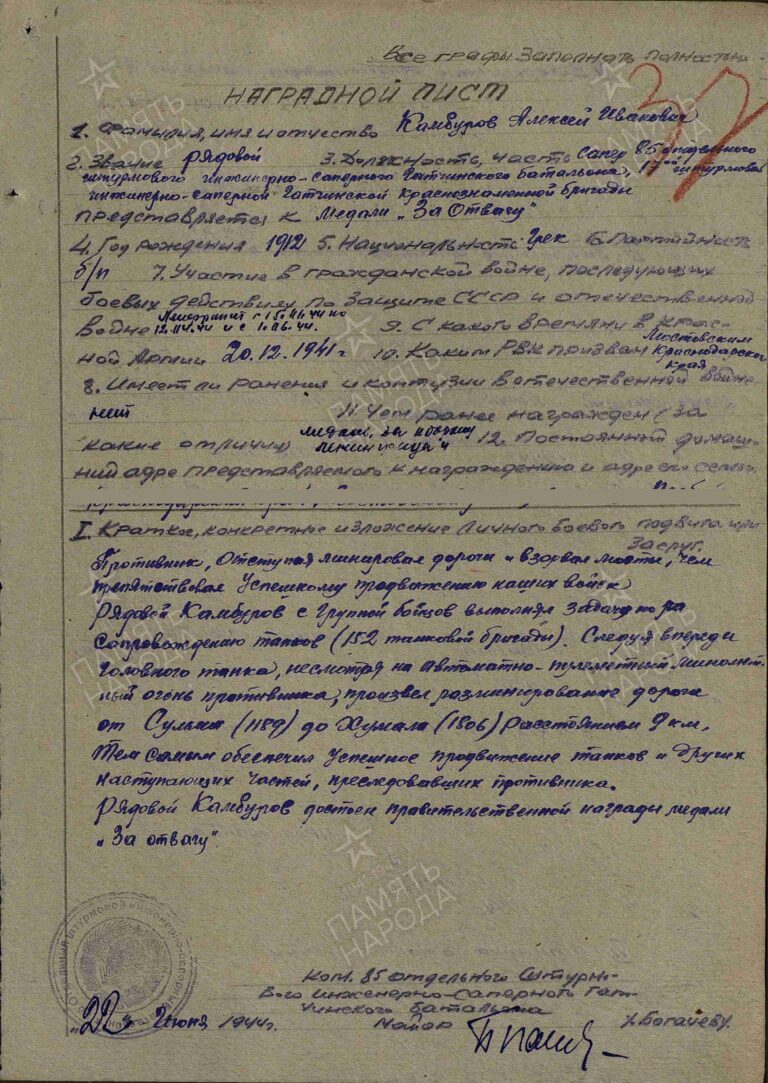 Все графы заполнять полностью
37
НАГРАДНОЙ ЛИСТ
1. Фамилия, имя и отчество Камбуров Алексей Иванович
2. Звание рядовой 3. Должность, часть сапер 85 отдельного
штурмового инженерно-саперного Гатчинского батальона, 17ой штурмовой
инженерно-саперной Гатчинской Краснознаменной бригады
представляется к медали „За Отвагу"
4. Год рождения 1912 5. Национальность Грек 6. Партийность
б/п 7. Участие в гражданской войне, последующих
боевых действиях по защите СССР и отечественной
войне Ленфронт с по
12.04.44 и с 1.06.44. 9. С какого времени в Крас-
ной Армии 20.12.1941г 10. Каким РВК призван Мостовским
Краснодарского
края
8. Имеет ли ранения и контузии в отечественной войне
нет 11. Чем ранее награжден (за
какие отличия) медаль „за оборону
Ленинграда" 12. Постоянный домаш-
ний адрес представляемого к награждению и адрес его семьи
I. Краткое, конкретное изложение личного боевого подвига или
заслуг.
Противник, отступая минировал дороги и взорвал мосты, чем
препятствовал успешному продвижению наших войск
Рядовой Камбуров с группой бойцов выполнял задачу по ра
сопровождению танков (152 танковой бригады). Следуя впереди
головного танка, несмотря на автоматно-пулеметный миномет-
ный огонь противника, произвел разминирование дороги
от Сульма (1189) до Хумала (1806) Расстоянием 9 км,
тем самым обеспечил успешное продвижение танков и других
наступающих частей, преследовавших противника.
Рядовой Камбуров достоен правительственной награды медали
„За отвагу"
Ком. 85 отдельного Штурмо-
вого инженерно-саперного Гат-
чинского батальона
„22" Июня 1944г. Майор /Богачев/
ПАМЯТЬ НАРОДА